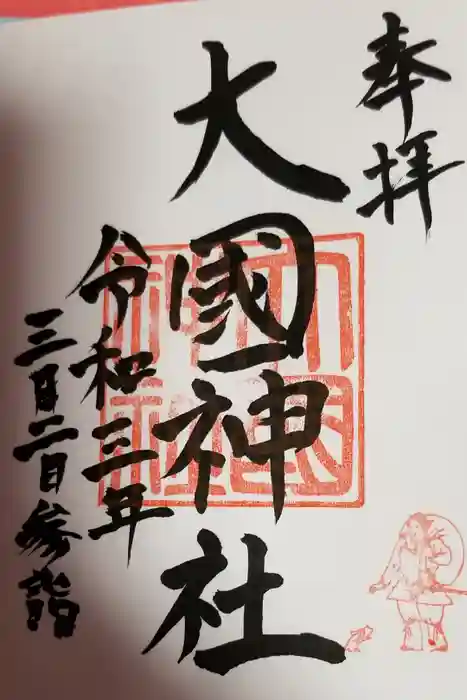 奉拝
大國神社
令和三年
三月二日参詣
大国神社